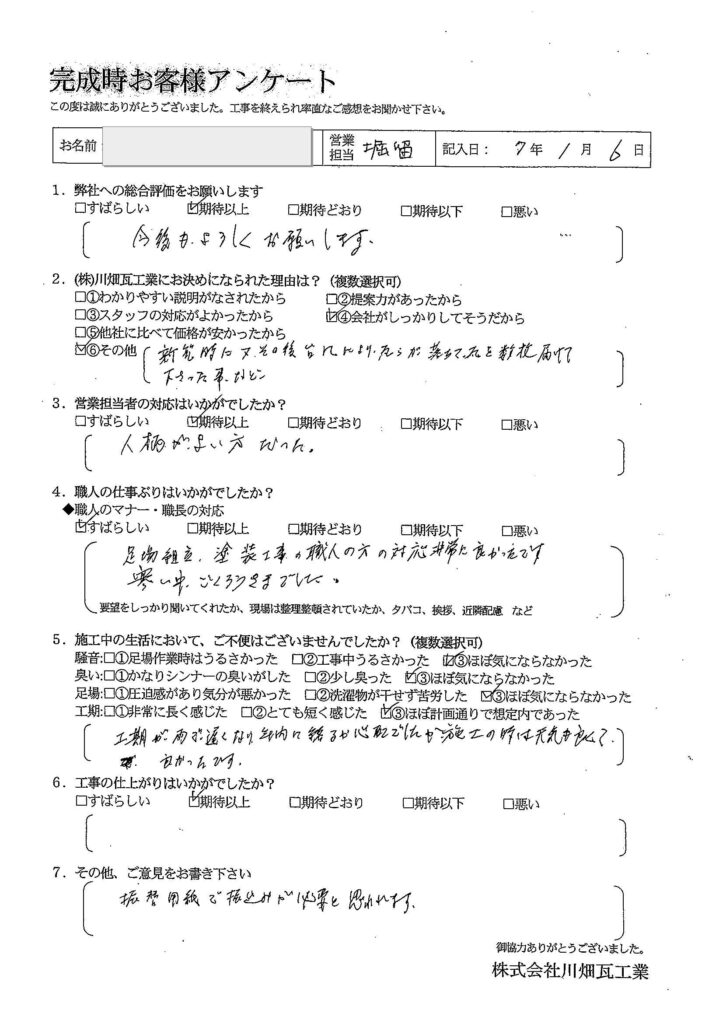 完成時お客様アンケート
この度は誠にありがとうございました。工事を終えられ率直なご感想をお聞かせ下さい。
お名前 営業担当 堀留 記入日: 7年 1月 6日
1.弊社への総合評価をお願いします
□すばらしい ☑期待以上 □期待どおり □期待以下 □悪い
今後もよろしくお願いします。
2.(株)川畑瓦工業にお決めになられた理由は?(複数選択可)
□①わかりやすい説明がなされたから □②提案力があったから
□③スタッフの対応がよかったから ☑④会社がしっかりしてそうだから
□⑤他社に比べて価格が安かったから
☑⑥その他 新築時に又その後台風によりかわらが落ちてたを数枚届けて
下さった事など
3.営業担当者の対応はいかがでしたか?
□すばらしい ☑期待以上 □期待どおり □期待以下 □悪い
人柄がよい方だった。
4.職人の仕事ぶりはいかがでしたか?
◆職人のマナー・職長の対応
☑すばらしい □期待以上 □期待どおり □期待以下 □悪い
足場組立、塗装工事の職人の方の対応非常に良かったです
寒い中、ごくろうさまでした。
要望をしっかり聞いてくれたか、現場は整理整頓されていたか、タバコ、挨拶、近隣配慮 など
5.施工中の生活において、ご不便はございませんでしたか?(複数選択可)
騒音:□①足場作業時はうるさかった □②工事中うるさかった ☑③ほぼ気にならなかった
臭い:□①かなりシンナーの臭いがした □②少し臭った ☑③ほぼ気にならなかった
足場:□①圧迫感があり気分が悪かった □②洗濯物が干せず苦労した ☑③ほぼ気にならなかった
工期:□①非常に長く感じた □②とても短く感じた ☑③ほぼ計画通りで想定内であった
工期が雨で遅くなり年内に終るか心配でしたが施工の時は天気も良くて、
良かったです。
6.工事の仕上がりはいかがでしたか?
□すばらしい ☑期待以上 □期待どおり □期待以下 □悪い
7.その他、ご意見をお書き下さい
振替用紙で振込みが必要と思われます。
御協力ありがとうございました。
株式会社川畑瓦工業